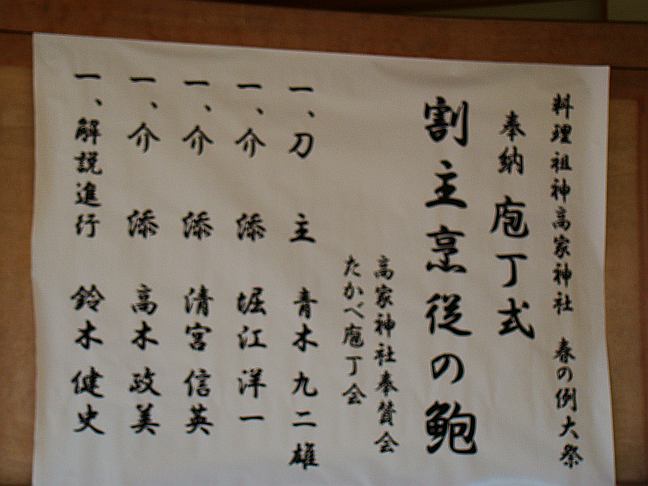 料理祖神高家神社　春の例大祭
奉納 庖丁式
割主烹従の鮑
高家神社奉賛会
たかべ庖丁会
一、刀　主　青木九二雄
一、介　添　堀江洋一
一、介　添　清宮信英
一、介　添　高木政美
一、解説進行　鈴木健史